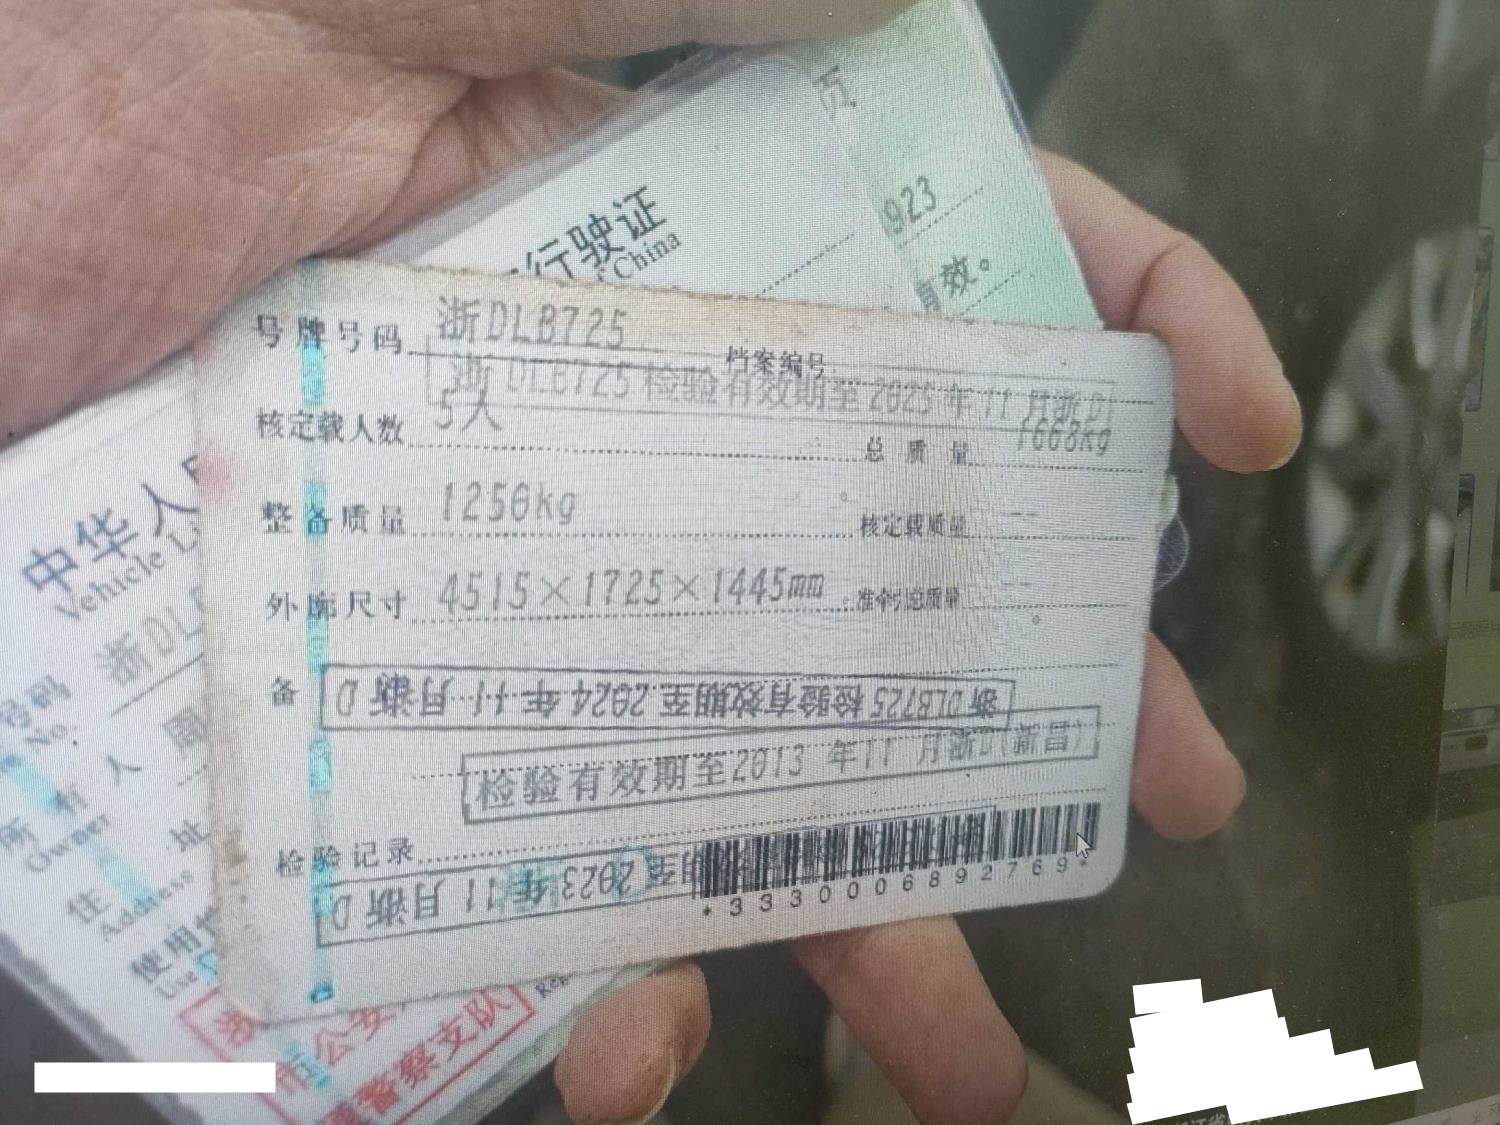 页
923
有效。
行驶证
China
号牌号码 浙DLB725
档案编号
浙DLB725检验有效期至2025年11月浙D
核定载人数 5人
总质量 1668kg
整备质量 1250kg
核定载质量 --
外廓尺寸 4515×1725×1445mm
准牵引总质量 --
备
浙DLB725检验有效期至2024年11月浙D
检验有效期至2013年11月浙D(新昌)
检验记录
期至2023年11月浙D
*3330006892769*
中华人民
Vehicle Li
浙DL
号码
No.
所有人 周
Owner
住 址
Address
使用性
Use
公安
警察支队